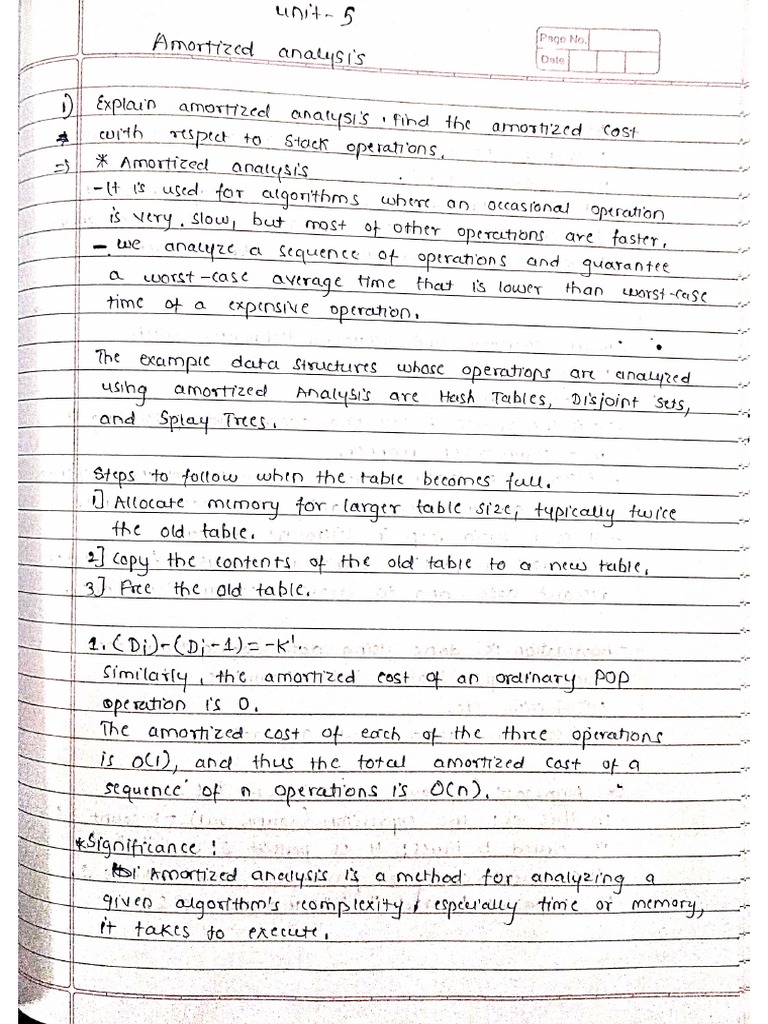 Unit-5
Amortized analysis
Page No.
Date
1) Explain amortized analysis. find the amortized cost
* with respect to Stack operations.
=> * Amortized analysis
- It is used for algorithms where an occasional operation
is very slow, but most of other operations are faster.
- we analyze a sequence of operations and guarantee
a worst-case average time that is lower than worst-case
time of a expensive operation.
The example data structures whose operations are analyzed
using amortized Analysis are Hash Tables, Disjoint sets,
and Splay Trees.
Steps to follow when the table becomes full.
1] Allocate memory for larger table size, typically twice
the old table.
2] Copy the contents of the old table to a new table.
3] Free the old table.
1. (Di)-(Di-1)=-K'
Similarly, the amortized cost of an ordinary POP
operation is 0.
The amortized cost of each of the three operations
is O(1), and thus the total amortized cost of a
sequence of n operations is O(n).
*Significance:
Amortized analysis is a method for analyzing a
given algorithm's complexity, especially time or memory,
it takes to execute.